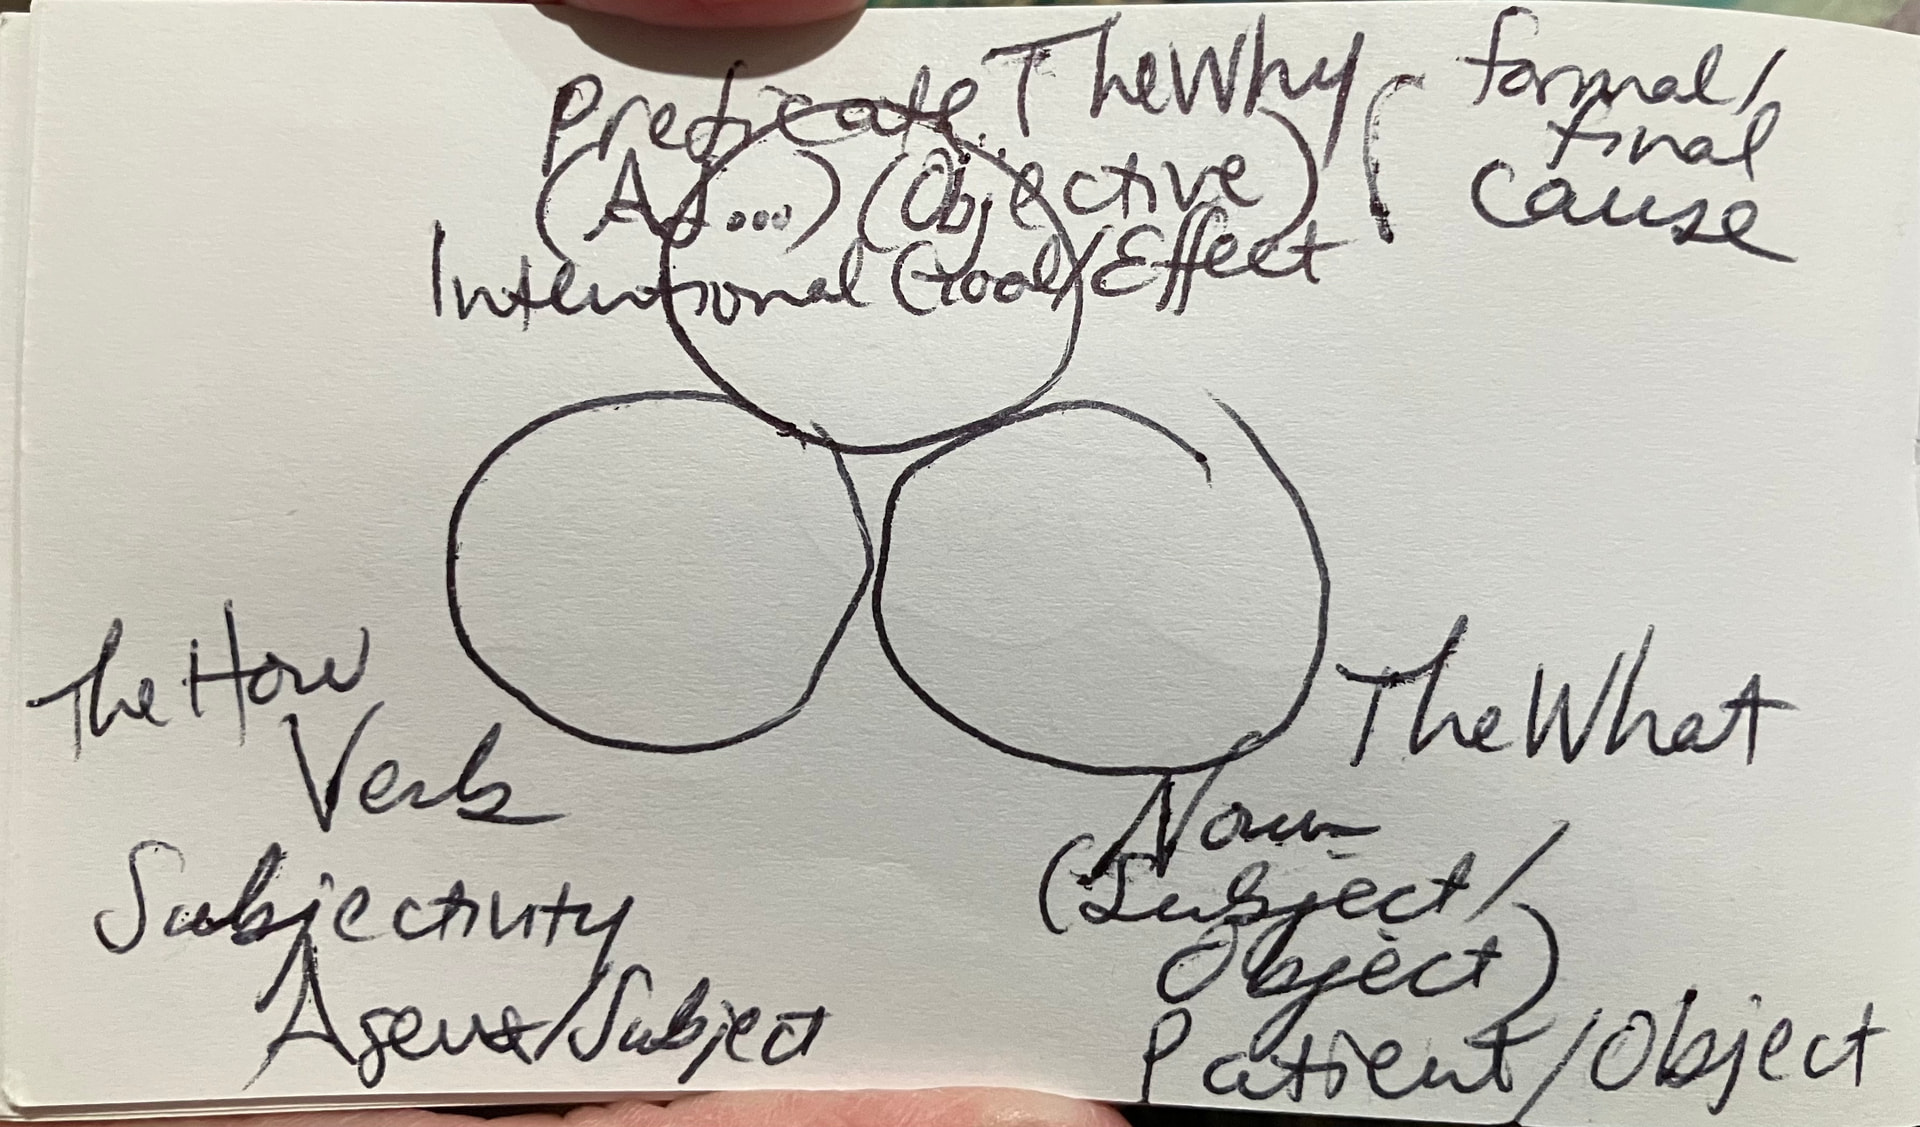 Predicate The Why
(Adj...) (Objective)
Intentional Goal/Effect
formal/
final
cause
The How
Verb
Subjectivity
Agent/Subject
The What
Noun
(Subject/
Object)
Patient/Object